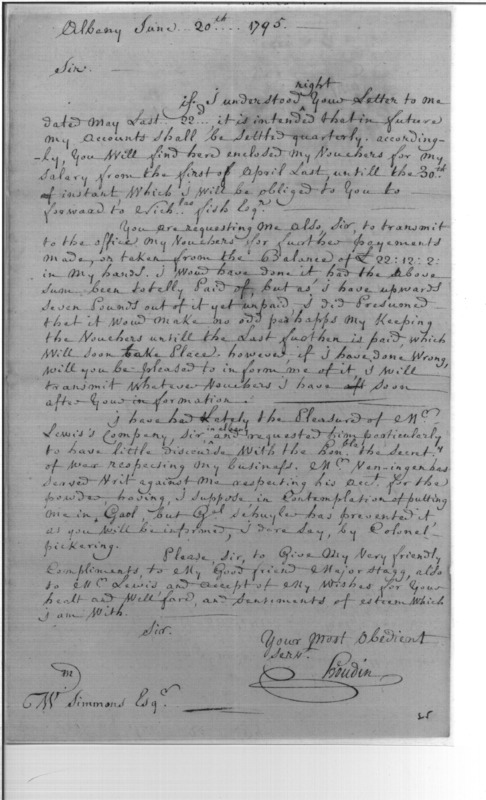 Albany June 20th 1795.
Sir.
right
if I understood Your Letter to me
dated May Last 22d it is intended that in future
my Accounts shall be settled quarterly. according-
-ly, You Will find here enclosed my Vouchers for my
salary from the first of April Last, untill the 30th
instant Which I Will be obliged to You to
forward to Nichlas fish Esqr
You are requesting me Also, Sir, to transmit
to the office My Vouchers for further Payements
made, or taken from the Balance of £22:12:2:
in my hands. I Woud have done it had the Above
sum been totally Paid of, but as I have upwards
seven Pounds out of it yet unpaid, I did Presumed
that it Woud make no odd perhapps my Keeping
the Vouchers untill the Last further is paid, which
Will soon take Place. however, if I have done Wrong,
will you be pleased to inform me of it, I Will
transmit Whatever Vouchers I have soon
after Your information.
I have had Lately the Pleasure of Mr
Lewis's Company, Sir, and requested him particularly
to have little discourse With the honble the Secrety
of war respecting my business. Mr Van-ingen has
served Writ against Me respecting his Acct for the
powder, having, I suppose in Contemplation of putting
me in Gaol but Gl Schuyler has prevented it
as you Will be informed, I dare say, by Colonel
pickering.
Please, Sir, to Give My Very friendly
Compliments, to My Good friend Major Stagg, also
to Mr Lewis and accept of My Wishes for Your
healt and Well fard, and sentiments of esteem Which
I am With.
Sir.
Your Most Obedient
Servt
Houdin
Wm Simmons Esqr